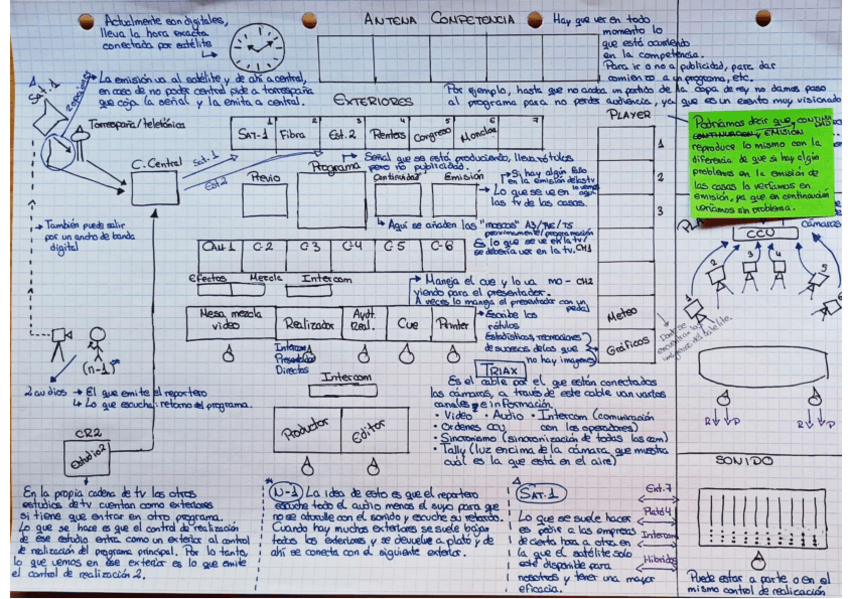 Actualmente son digitales,
lleva la hora exacta
conectada por satélite
ANTENA COMPETENCIA
Hay que ver en todo
momento lo
que está ocurriendo
en la competencia.
Para ir o no a publicidad, para dar
comienzo a un programa, etc.
Por ejemplo, hasta que no acaba un partido de la copa de rey no damos paso
al programa para no perder audiencia, ya que es un evento muy visionado
Sat. 1
La emisión va al satélite y de ahí a central,
en caso de no poder central pide a torrespaña
que coja la señal y la emita a central.
Torrespaña/telefónica
EXTERIORES
1 2 3 4 5 6 7
SAT-1 Fibra Est. 2 Rentas Congreso Moncloa
PLAYER
1
2
3
Meteo
Gráficos
Podríamos decir que, CONTINUA
EMISIÓN
reproduce lo mismo con la
diferencia de que si hay algún
problema en la emisión de
las casas lo veríamos en
emisión, ya que en continuación
veríamos sin problema.
C. Central
Sat. 1
Est 2
Señal que se está produciendo, lleva rótulos
pero no publicidad.
Previo Programa Continuidad Emisión
Si hay algún fallo
en la emisión
Lo que se ve en
las tv de las casas.
Aquí se añaden las "moscas" A3/T5
Es lo que se ve en la tv/
se debería ver en la tv. CH1
También puede salir
por un ancho de banda
digital
CAM-1 C-2 C-3 C-4 C-5 C-6
Efectos Mezcla Intercom
Maneja el cue y lo va mo- CH2
viendo para el presentador.
A veces lo maneja el presentador con un
pedal
Mesa mezcla
video
Realizador
Aydt.
Real.
Cue
Printer
Escribe los
rótulos
Estadísticas, recreaciones
de sucesos de los que
no hay imágenes
Intercom
Presentador
Directos
Intercom
Productor Editor
(n-1)
2 audios → El que emite el reportero
Lo que escucha: retorno del programa.
CR2
Estudio2
TRIAX
Es el cable por el que están conectadas
las cámaras, a través de este cable van varios
canales de información.
· Video · Audio · Intercom (comunicación
con los operadores)
· Ordenes CCU
· Sincronismo (sincronización de todas las cam)
· Tally (luz encima de la cámara, que muestra
cuál es la que está en el aire)
Cámaras
CCU
1 2 3 4 5
SONIDO
Ext. 7
Plató 4
Intercom
Híbridos
Puede estar a parte o en el
mismo control de realización
En la propia cadena de tv los otros
estudios de tv cuentan como exteriores
si tiene que entrar en otro programa.
Lo que se hace es que el control de realización
de ese estudio entra como un exterior al control
de realización del programa principal. Por lo tanto,
lo que vemos en ese exterior es lo que emite
el control de realización 2.
N-1 La idea de esto es que el reportero
escuche todo el audio menos el suyo para que
no se atrulle con el sonido y escuche su retardo.
Cuando hay muchos exteriores se suele bajar
todos los exteriores y se devuelve a plató y de
ahí se conecta con el siguiente exterior.
SAT. 1
Lo que se suele hacer
es pedir a las empresas
de cierta hora a otra en
la que el satélite solo
esté disponible para
nosotros y tener una mayor
eficacia.